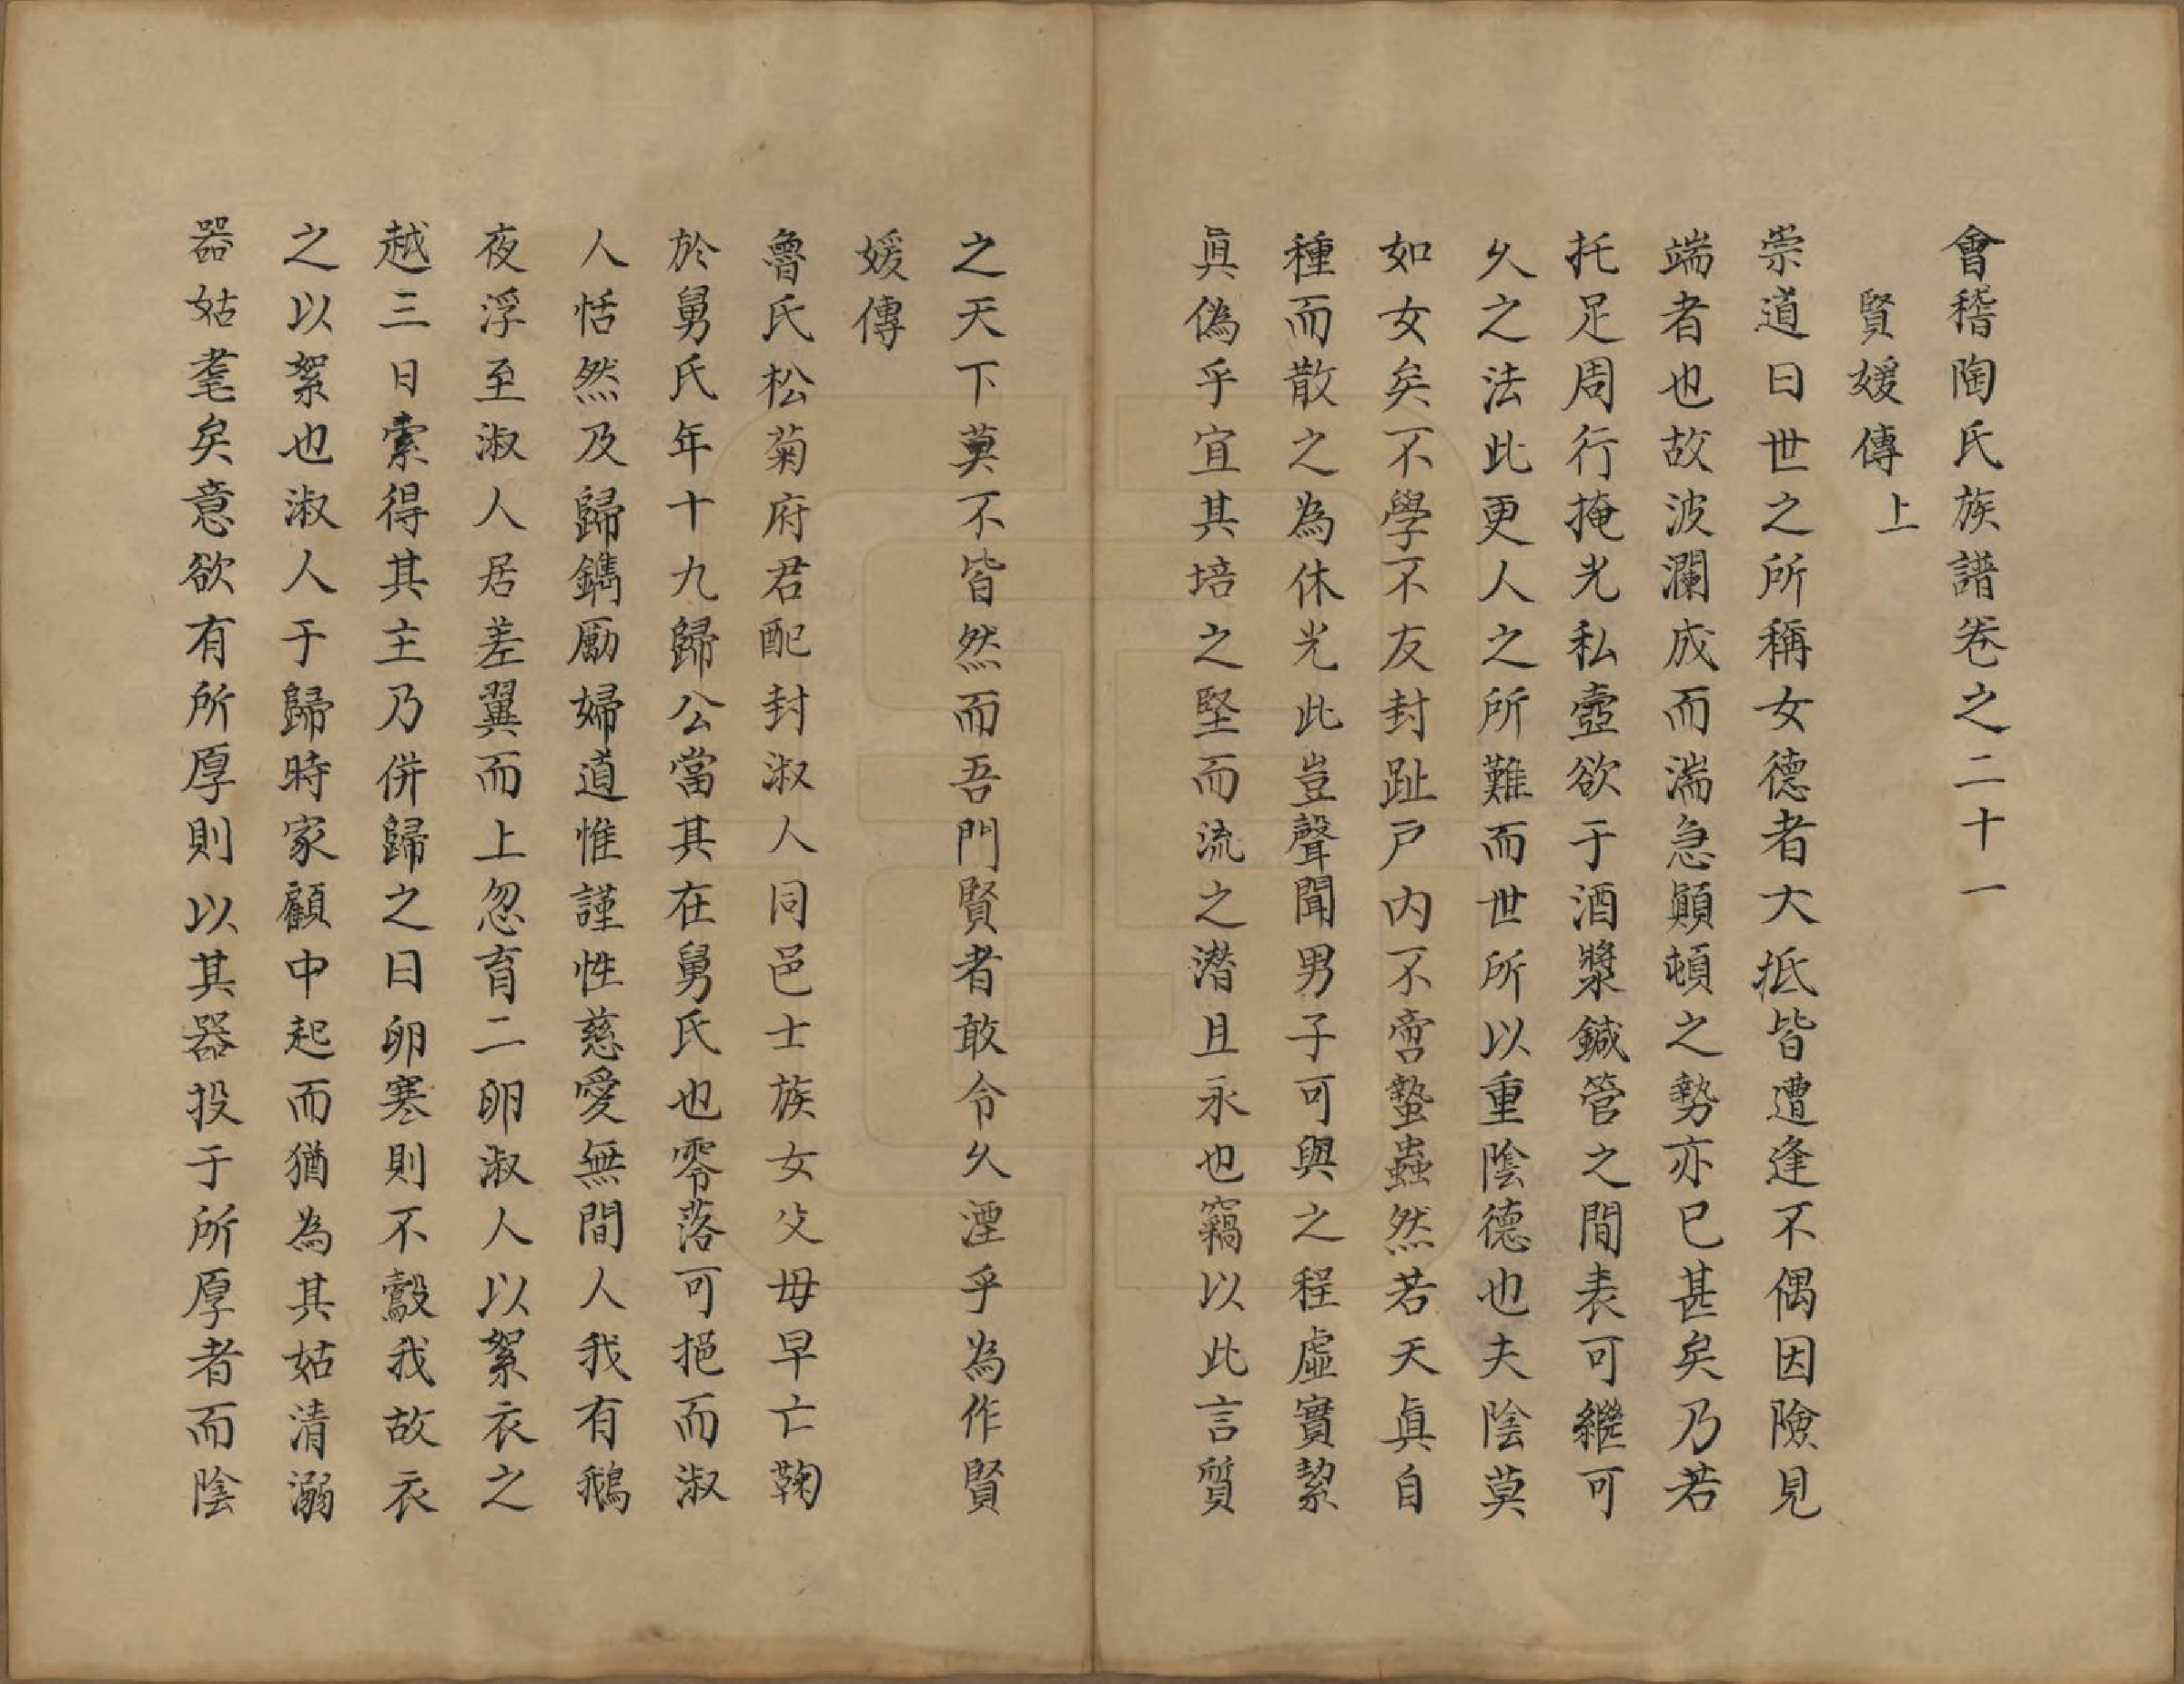 會稽陶氏族譜卷之二十一
賢媛傳上
崇道曰世之所稱女德者大抵皆遭逢不偶因險見
端者也故波瀾成而湍急顚頓之勢亦已甚矣乃若
托足周行掩光私壼欲于酒漿鍼管之間表可繼可
久之法此更人之所難而世所以重陰德也夫陰莫
如女矣不學不友封趾戸内不啻蟄蟲然若天眞自
種而散之為休光此豈聲聞男子可與之程虛實絜
眞偽乎宜其培之堅而流之潛且永也竊以此言質
之天下莫不皆然而吾門賢者敢令久湮乎為作賢
媛傳
魯氏松菊府君配封淑人同邑士族女父母早亡鞠
於舅氏年十九歸公當其在舅氏也零落可挹而淑
人恬然及歸鐫勵婦道惟謹性慈愛無間人我有鵝
夜浮至淑人居差翼而上忽育二卵淑人以絮衣之
越三日索得其主乃併歸之曰卵寒則不鷇我故衣
之以絮也淑人于歸時家顧中起而猶為其姑清溺
器姑耄矣意欲有所厚則以其器投于所厚者而陰